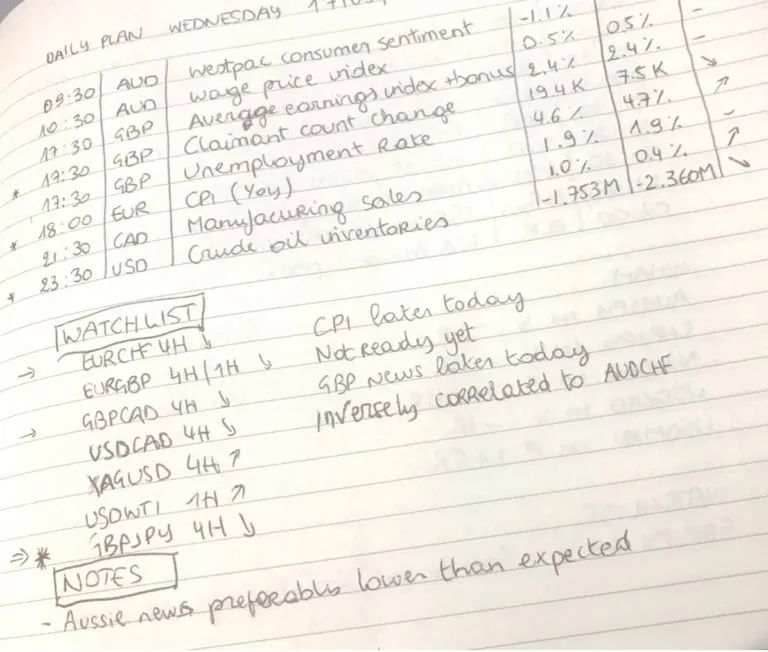 DAILY PLAN WEDNESDAY
09:30 AUD Westpac consumer sentiment -1.1%
10:30 AUD Wage price index 0.5% 0.5% -
17:30 GBP Average earnings index +bonus 2.4% 2.4% -
* 17:30 GBP Claimant count change 19.4K 7.5K ↘
17:30 GBP Unemployment Rate 4.6% 4.7% ↗
* 18:00 EUR CPI (YoY) 1.9% 1.9% -
21:30 CAD Manufacuring sales 1.0% 0.4% ↗
* 23:30 USD Crude oil inventories -1.753M -2.360M ↘
WATCHLIST
→ EURCHF 4H ↘ CPI later today
EURGBP 4H/1H ↘ Not ready yet
→ GBPCAD 4H ↘ GBP News later today
USDCAD 4H ↘ Inversely correlated to AUDCHF
XAGUSD 4H ↗
USDWTI 1H ↗
⇒ * GBPJPY 4H ↘
NOTES
- Aussie news preferably lower than expected